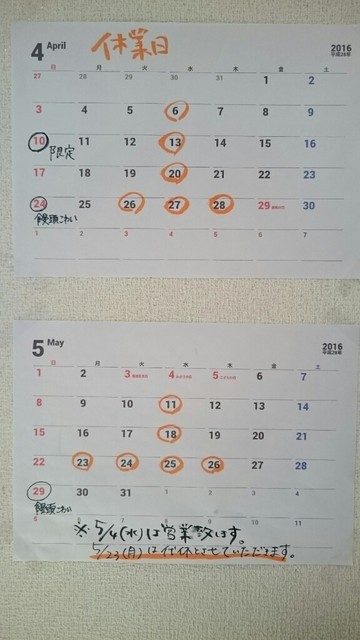 4 April 休業日 2016
平成28年
日 月 火 水 木 金 土
27 28 29 30 31 1 2
3 4 5 6 7 8 9
10 11 12 13 14 15 16
限定
17 18 19 20 21 22 23
24 25 26 27 28 29 30
饅頭こわい
1 2 3 4 5 6 7
5 May 2016
平成28年
日 月 火 水 木 金 土
1 2 3 4 5 6 7
8 9 10 11 12 13 14
15 16 17 18 19 20 21
22 23 24 25 26 27 28
29 30 31 1 2 3 4
饅頭こわい
5 6 7 8 9 10 11
※5/4(水)は営業致します。
5/23(月)は代休とさせていただきます。